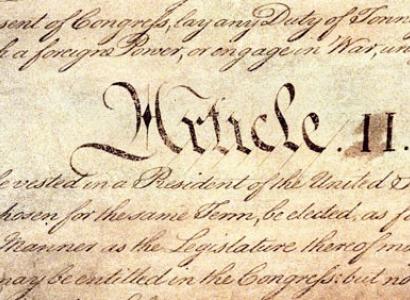 sent of Congreſs, lay any Duty of Tonn
h a foreign Power, or engage in War, un
Article. II.
be vested in a President of the United S
hosen for the same Term, be elected, as fo
Manner as the Legislature thereof m
may be entitled in the Congreſs: but no